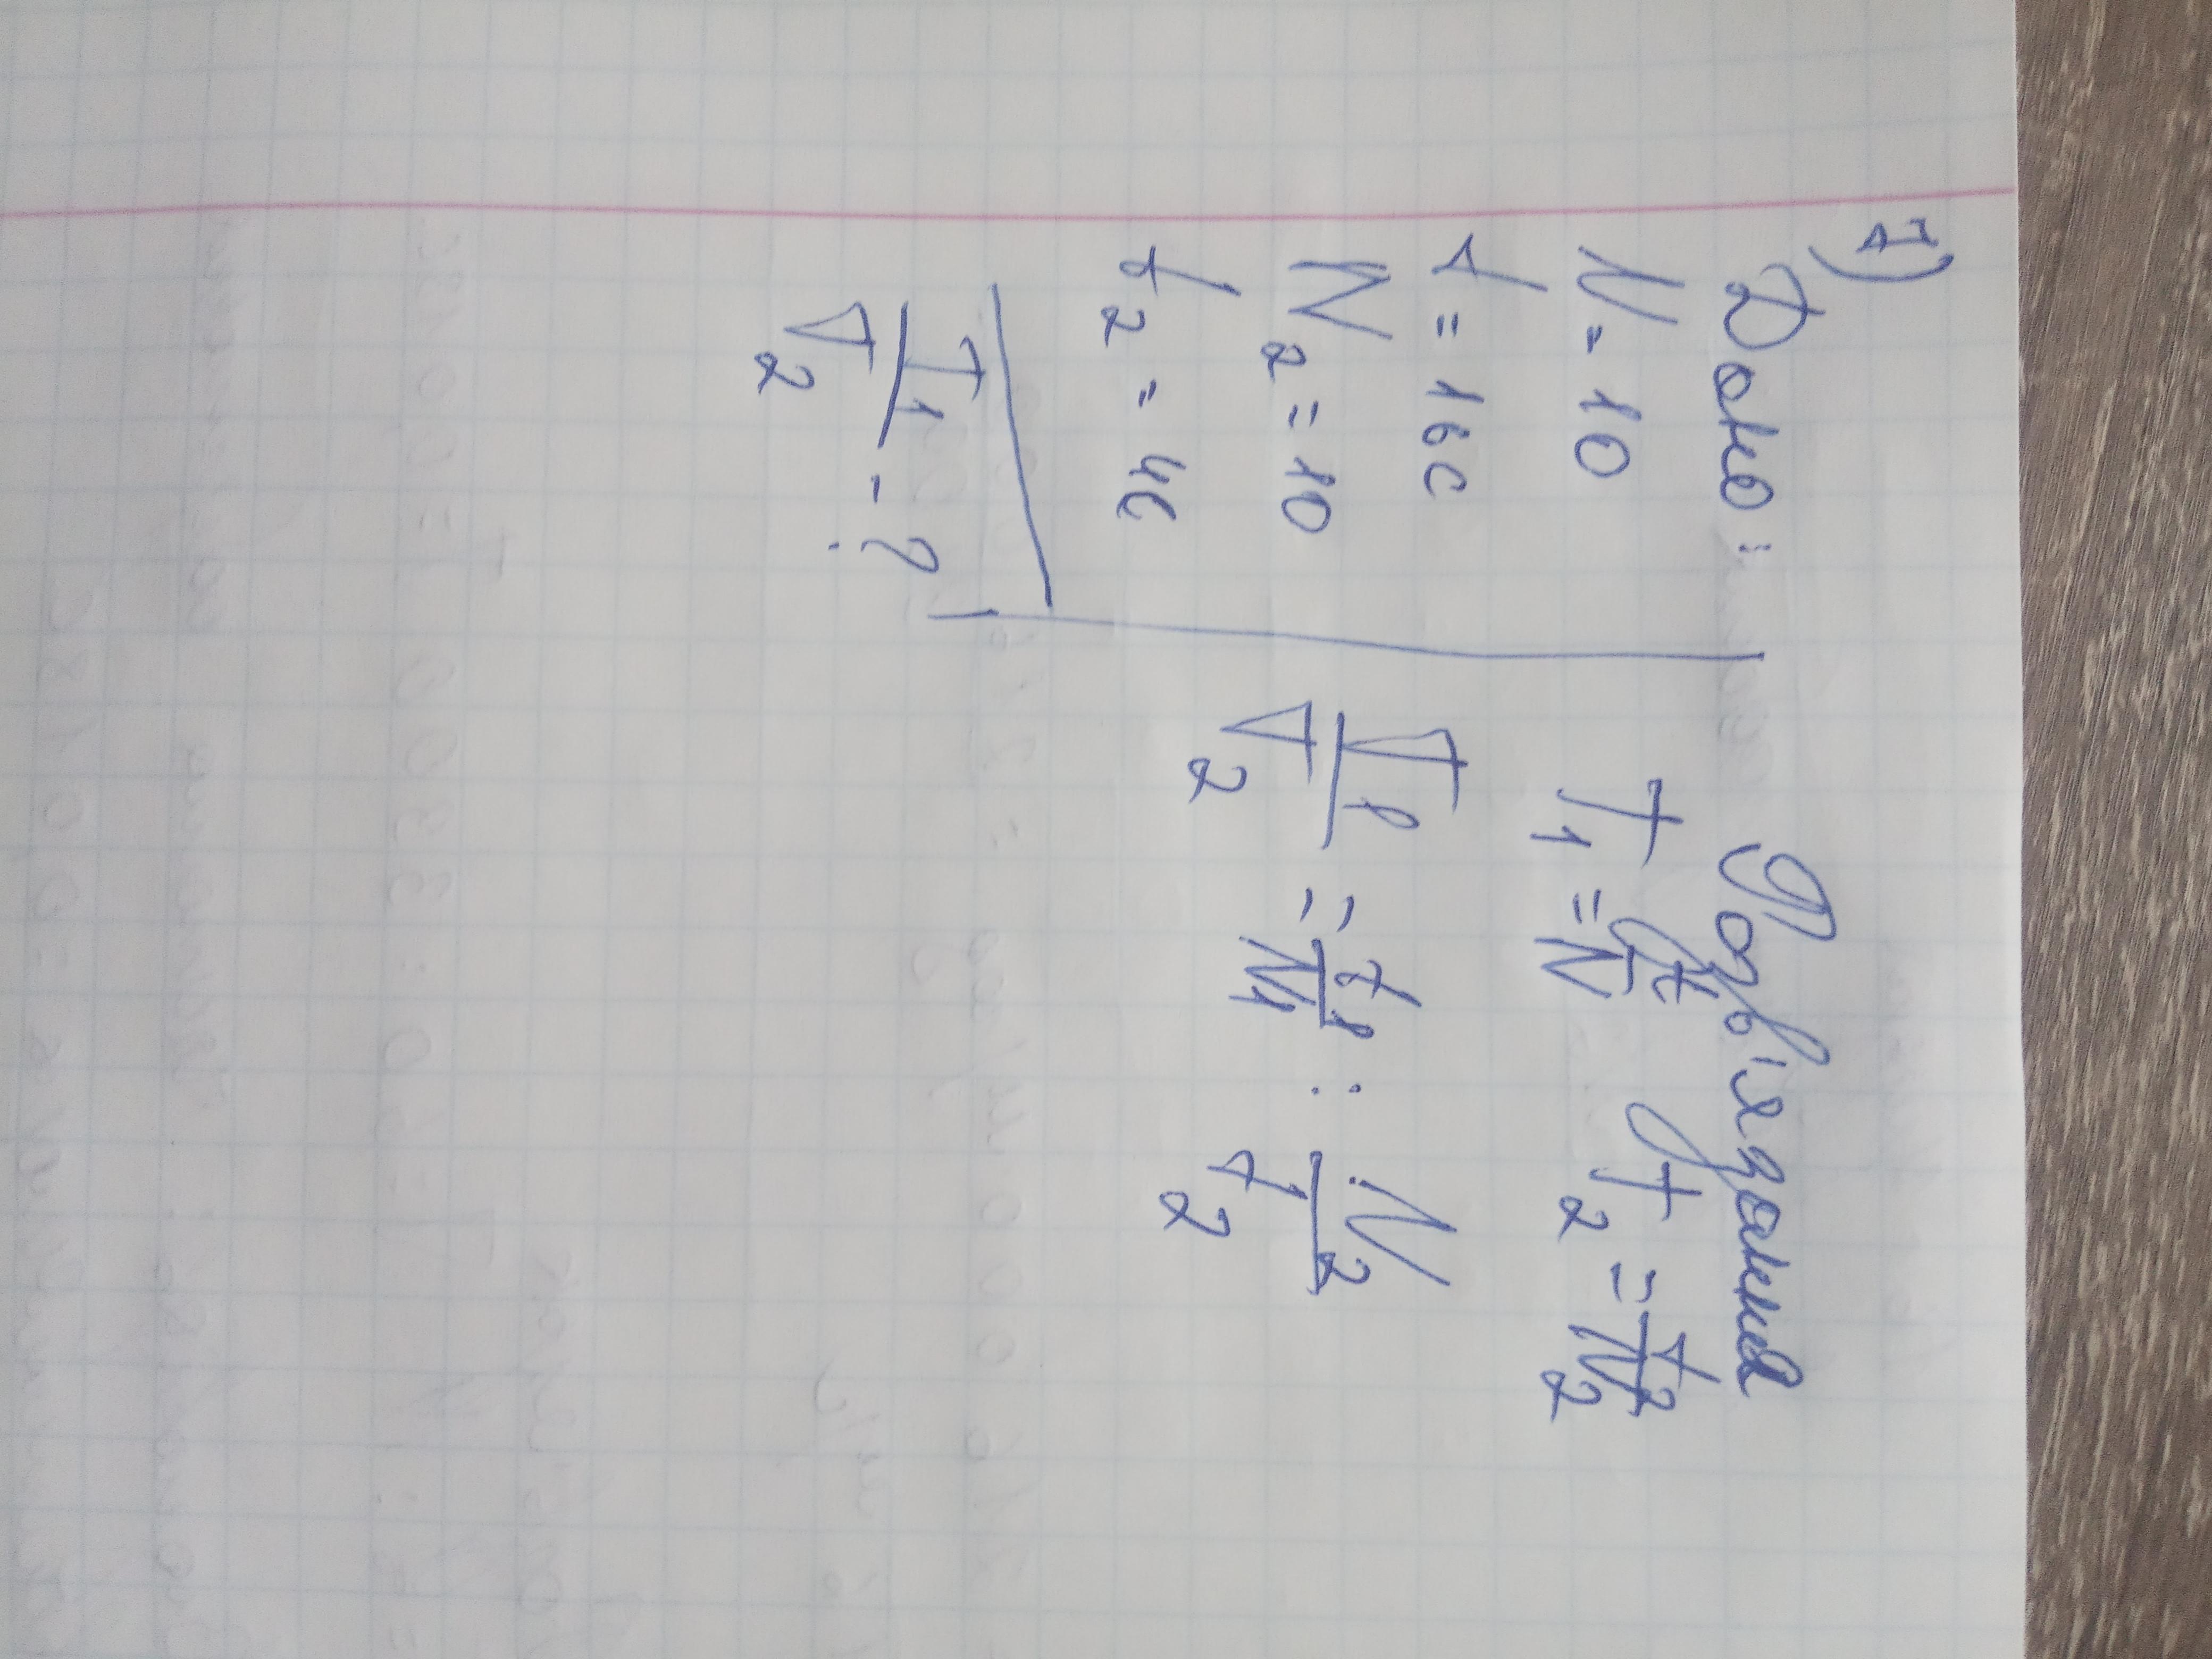 1)
Дано:
N=10
t=16с
N₂=10
t₂=4с
T₁/T₂ - ?
Розв'язання
T₁=t/N T₂=t₂/N₂
T₁/T₂ = t₁/N₁ : N₂/t₂